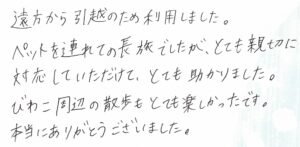 遠方から引越のため利用しました。
ペットを連れての長旅でしたが、とても親切に
対応していただけて、とても助かりました。
びわこ周辺の散歩もとても楽しかったです。
本当にありがとうございました。